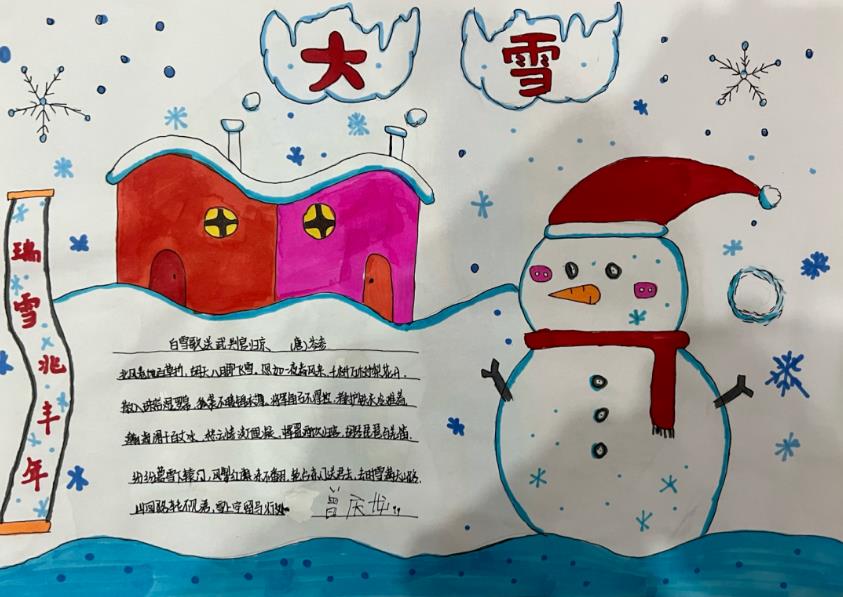 大雪
瑞雪兆丰年
白雪歌送武判官归京 (唐)岑参
北风卷地白草折,胡天八月即飞雪。忽如一夜春风来,千树万树梨花开。
散入珠帘湿罗幕,狐裘不暖锦衾薄。将军角弓不得控,都护铁衣冷难着。
瀚海阑干百丈冰,愁云惨淡万里凝。
纷纷暮雪下辕门,风掣红旗冻不翻。轮台东门送君去,去时雪满天山路。
山回路转不见君,雪上空留马行处。